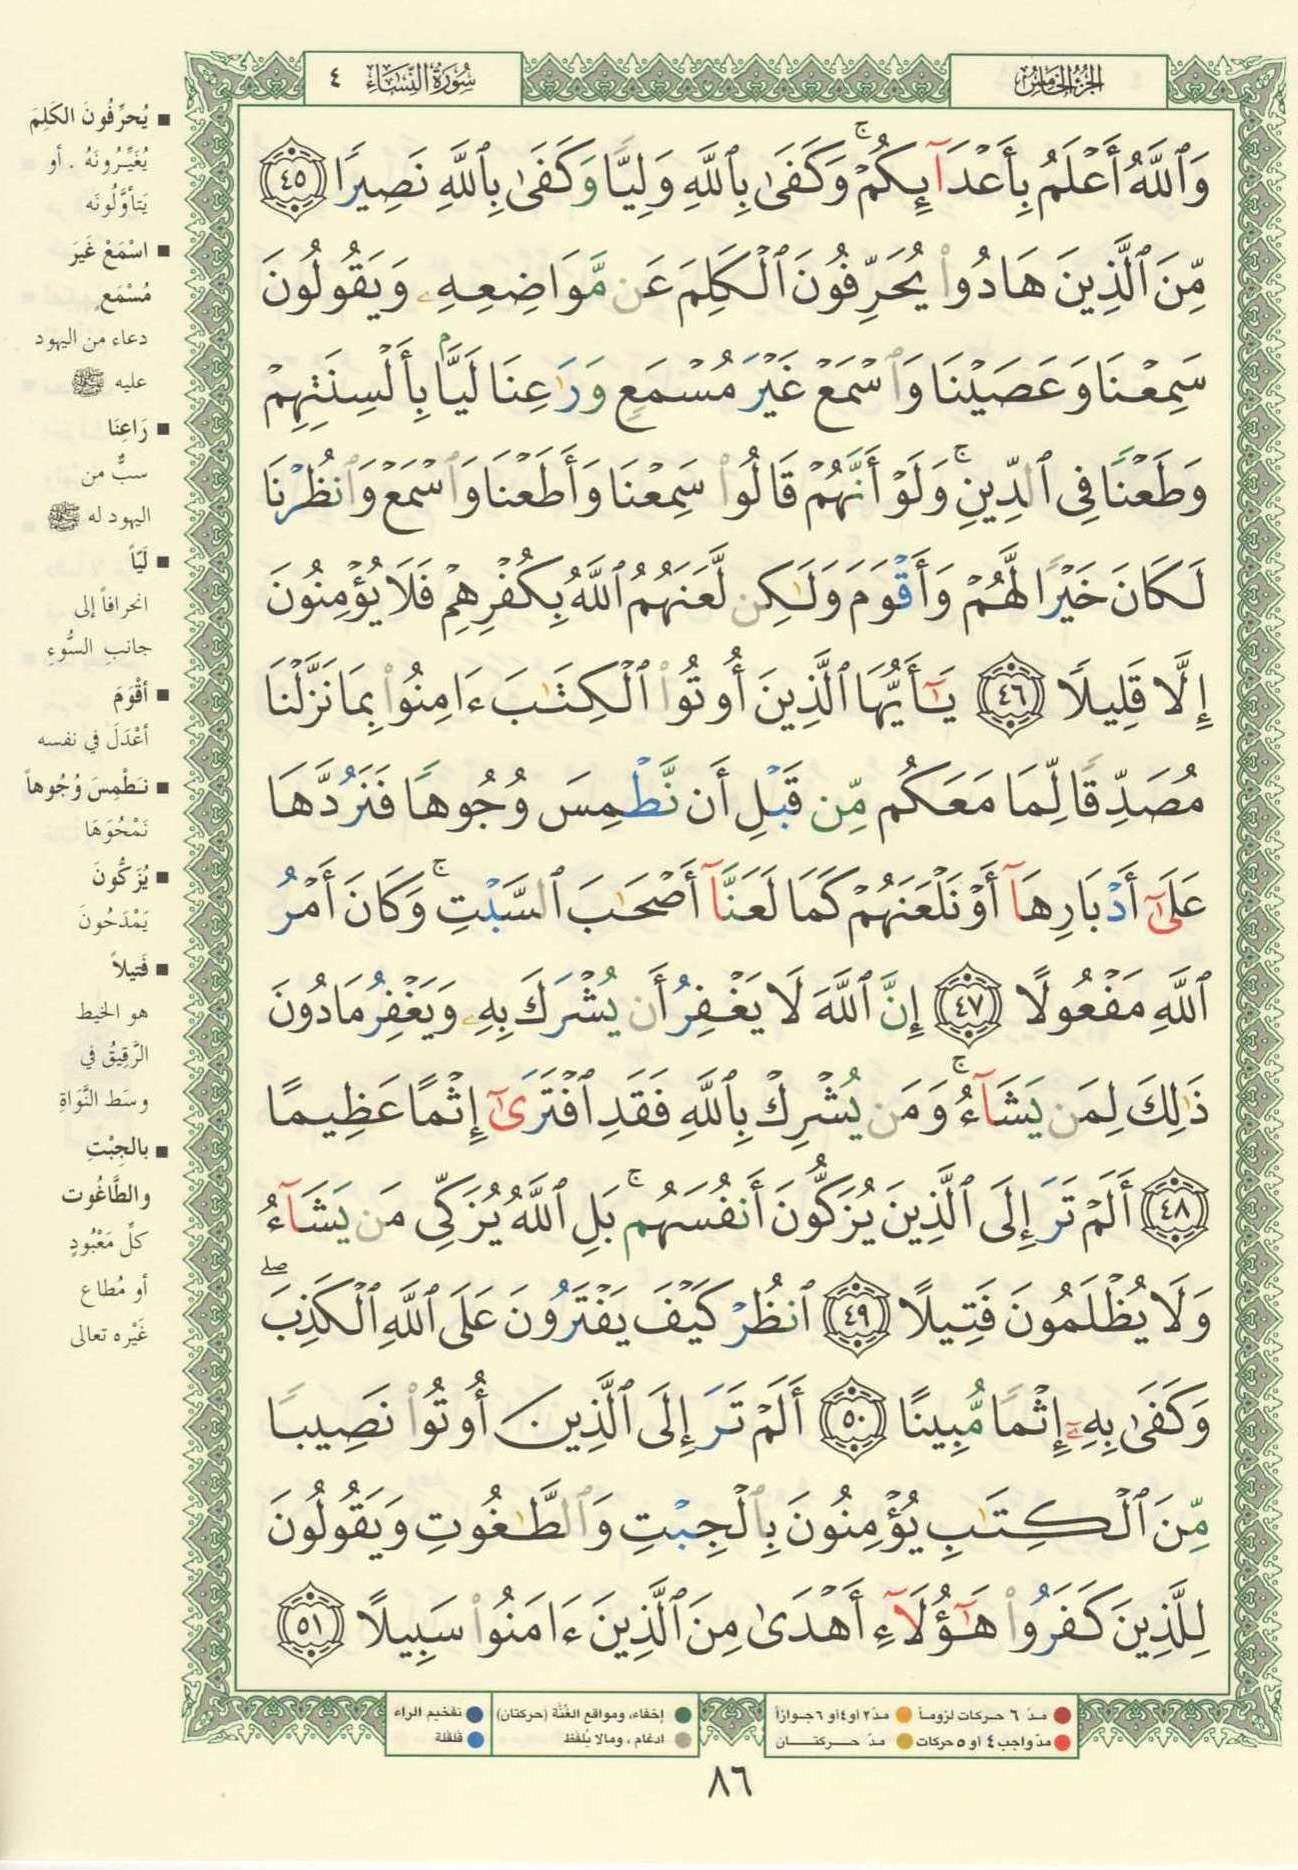 الجزء الخامس
سُورَةُ النِّسَاءِ ٤
وَٱللَّهُ أَعْلَمُ بِأَعْدَآئِكُمْ ۚ وَكَفَىٰ بِٱللَّهِ وَلِيًّا وَكَفَىٰ بِٱللَّهِ نَصِيرًا ٤٥
مِّنَ ٱلَّذِينَ هَادُوا۟ يُحَرِّفُونَ ٱلْكَلِمَ عَن مَّوَاضِعِهِۦ وَيَقُولُونَ
سَمِعْنَا وَعَصَيْنَا وَٱسْمَعْ غَيْرَ مُسْمَعٍ وَرَٰعِنَا لَيًّۢا بِأَلْسِنَتِهِمْ
وَطَعْنًا فِى ٱلدِّينِ ۚ وَلَوْ أَنَّهُمْ قَالُوا۟ سَمِعْنَا وَأَطَعْنَا وَٱسْمَعْ وَٱنظُرْنَا
لَكَانَ خَيْرًا لَّهُمْ وَأَقْوَمَ وَلَـٰكِن لَّعَنَهُمُ ٱللَّهُ بِكُفْرِهِمْ فَلَا يُؤْمِنُونَ
إِلَّا قَلِيلًا ٤٦ يَـٰٓأَيُّهَا ٱلَّذِينَ أُوتُوا۟ ٱلْكِتَـٰبَ ءَامِنُوا۟ بِمَا نَزَّلْنَا
مُصَدِّقًا لِّمَا مَعَكُم مِّن قَبْلِ أَن نَّطْمِسَ وُجُوهًا فَنَرُدَّهَا
عَلَىٰٓ أَدْبَارِهَآ أَوْ نَلْعَنَهُمْ كَمَا لَعَنَّآ أَصْحَـٰبَ ٱلسَّبْتِ ۚ وَكَانَ أَمْرُ
ٱللَّهِ مَفْعُولًا ٤٧ إِنَّ ٱللَّهَ لَا يَغْفِرُ أَن يُشْرَكَ بِهِۦ وَيَغْفِرُ مَا دُونَ
ذَٰلِكَ لِمَن يَشَآءُ ۚ وَمَن يُشْرِكْ بِٱللَّهِ فَقَدِ ٱفْتَرَىٰٓ إِثْمًا عَظِيمًا
٤٨ أَلَمْ تَرَ إِلَى ٱلَّذِينَ يُزَكُّونَ أَنفُسَهُم ۚ بَلِ ٱللَّهُ يُزَكِّى مَن يَشَآءُ
وَلَا يُظْلَمُونَ فَتِيلًا ٤٩ ٱنظُرْ كَيْفَ يَفْتَرُونَ عَلَى ٱللَّهِ ٱلْكَذِبَ ۖ
وَكَفَىٰ بِهِۦٓ إِثْمًا مُّبِينًا ٥٠ أَلَمْ تَرَ إِلَى ٱلَّذِينَ أُوتُوا۟ نَصِيبًا
مِّنَ ٱلْكِتَـٰبِ يُؤْمِنُونَ بِٱلْجِبْتِ وَٱلطَّـٰغُوتِ وَيَقُولُونَ
لِلَّذِينَ كَفَرُوا۟ هَـٰٓؤُلَآءِ أَهْدَىٰ مِنَ ٱلَّذِينَ ءَامَنُوا۟ سَبِيلًا ٥١
■ يُحرِّفُونَ الكَلِمَ
يُغَيِّرُونَهُ . أو
يَتَأَوَّلُونَه
■ اسْمَعْ غَيَرَ
مُسْمَعٍ
دعاء من اليهود
عليه ﷺ
■ رَاعِنَا
سبٌّ من
اليهود له ﷺ
■ لَيّاً
انحرافاً إلى
جانبِ السُّوءِ
■ أقْوَمَ
أعْدَلَ في نفسه
■ نَطْمِسَ وُجُوهاً
نَمْحُوَهَا
■ يُزَكُّونَ
يَمْدَحُونَ
■ فَتيلاً
هو الخيط
الرَّقِيقُ في
وسَط النَّوَاةِ
■ بالجِبْتِ
والطَّاغُوت
كلِّ مَعْبُودٍ
أو مُطاع
غَيْره تعالى
مدّ ٦ حركات لزوماً مدّ٢ أو٤أو ٦جوازاً
مدّ واجب ٤ أو ٥ حركات مدّ حركتان
إخفاء، ومواقع الغُنَّة (حركتان) تفخيم الراء
ادغام ، ومالا يُلفَظ قلقلة
٨٦